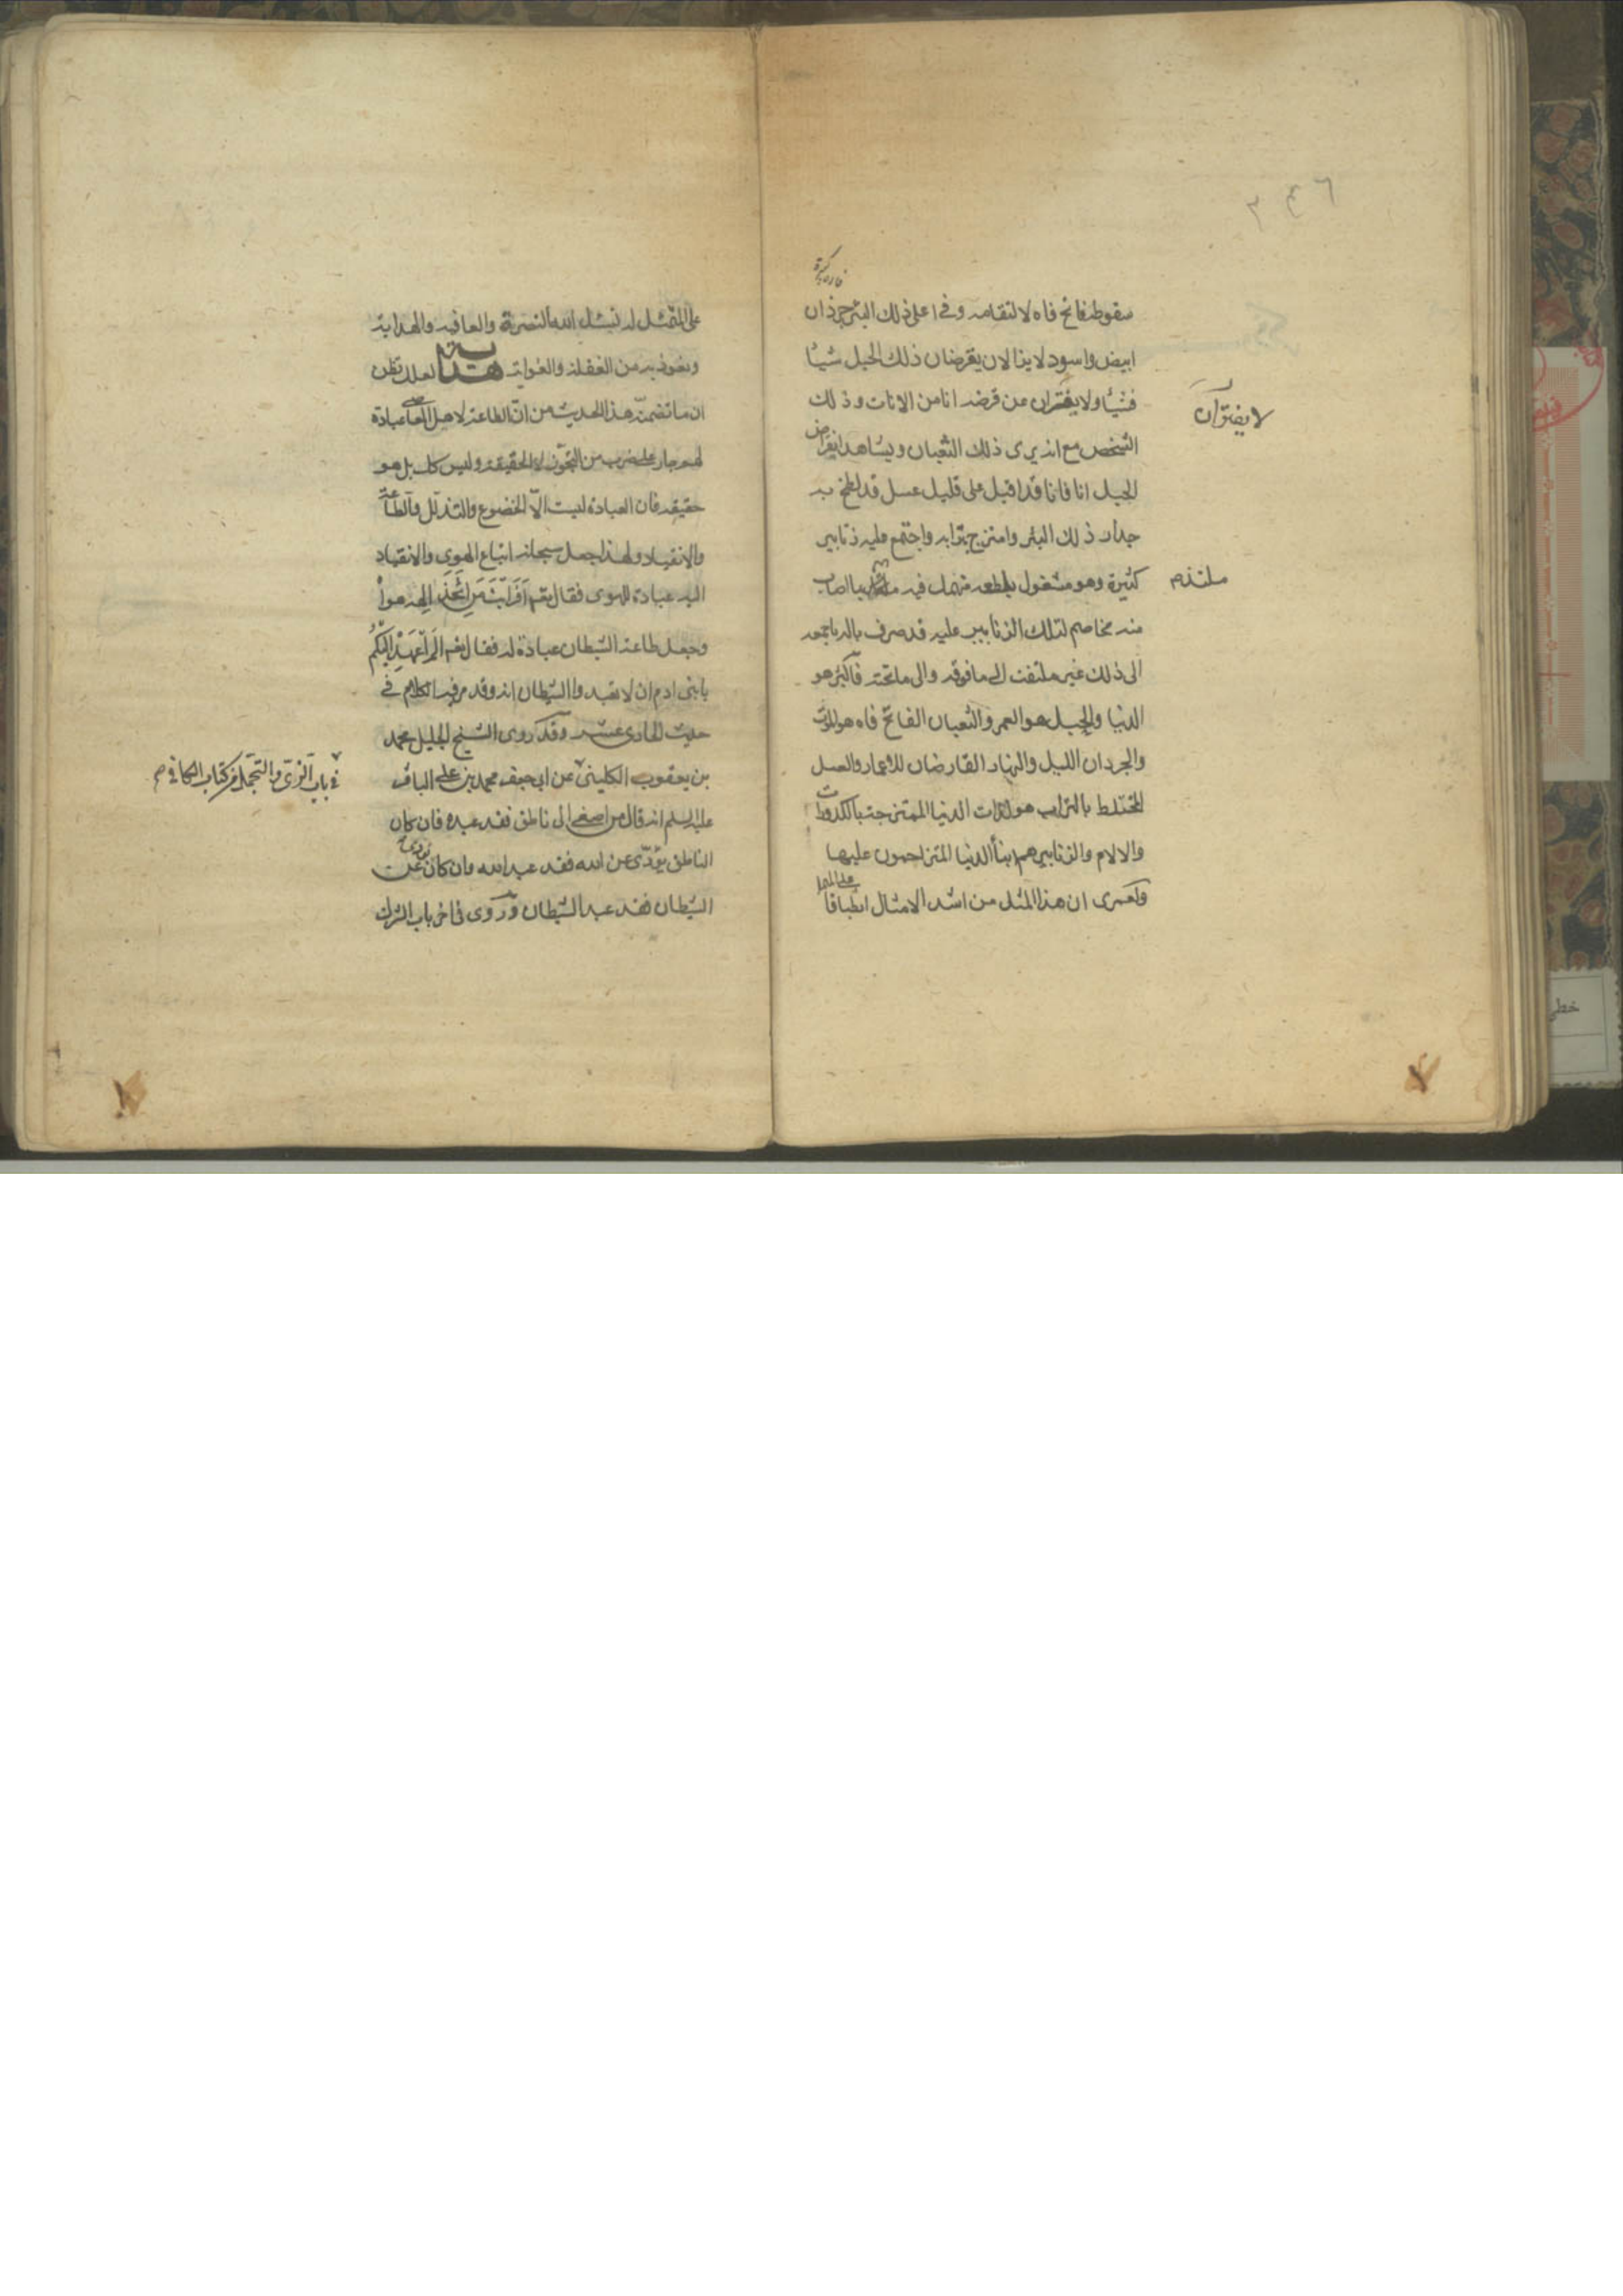 ٣٤٦
سقوطه فاتح فاه لالتقامه وفى اعلى ذلك البئر جرذان
ابيض واسود لا يزالان يقرضان ذلك الحبل شيئا
فشيئا ولا يفتران عن قرضه انا من الانات وذلك
لا يفتران
الشخص مع انه يرى ذلك الثعبان ويشاهد انقراض
الحبل انا فانا قد اقبل على قليل عسل قد لطخ به
جدار ذلك البئر وامتزج بترابه واجتمع عليه زنابير
كثيرة وهو مشغول بلطعه منهمك فيه ملتذ بما اصاب
ملتذ م
منه مخاصم لتلك الزنابير عليه قد صرف باله باجمعه
الى ذلك غير ملتفت الى ما فوقه والى ما تحته فالبئر هو
الدنيا والحبل هو العمر والثعبان الفاتح فاه هو الموت
والجرذان الليل والنهار القارضان للاعمار والعسل
المختلط بالتراب هو لذات الدنيا الممتزجة بالكدورات
والالام والزنابير هم ابناء الدنيا المتزاحمون عليها
ولعمرى ان هذا المثل من اشد الامثال انطباقا
على الممثل له نسئل الله النصرة والعافيه والهداية
ونعوذ به من الغفلة والغواية هداية لعلك تظن
ان ما تضمنه هذا الحديث من ان الطاعة لاهل المعاصى عبادة
لهم جار على ضرب من التجوز لا الحقيقة وليس كك بل هو
حقيقة فان العبادة ليست الا الخضوع والتذلل والطاعة
والانقياد ولهذا جعل سبحانه اتباع الهوى والانقياد
اليه عبادة للهوى فقال تعم افرايت من اتخذ الهه هواه
وجعل طاعة الشيطان عبادة له فقال تعم الم اعهد اليكم
يا بنى ادم ان لا تعبدوا الشيطان انه وقد مر فيه الكلام فى
حديث الحادى عشر وقد روى الشيخ الجليل محمد
بن يعقوب الكلينى عن ابى جعفر محمد بن على الباقر
فى باب الزى والتجمل من كتاب الكافى م
عليه السلم انه قال من اصغى الى ناطق فقد عبده فان كان
الناطق يؤدى عن الله فقد عبد الله وان كان يؤدى عن
الشيطان فقد عبد الشيطان وروى فى اخر باب الشرك
خطى